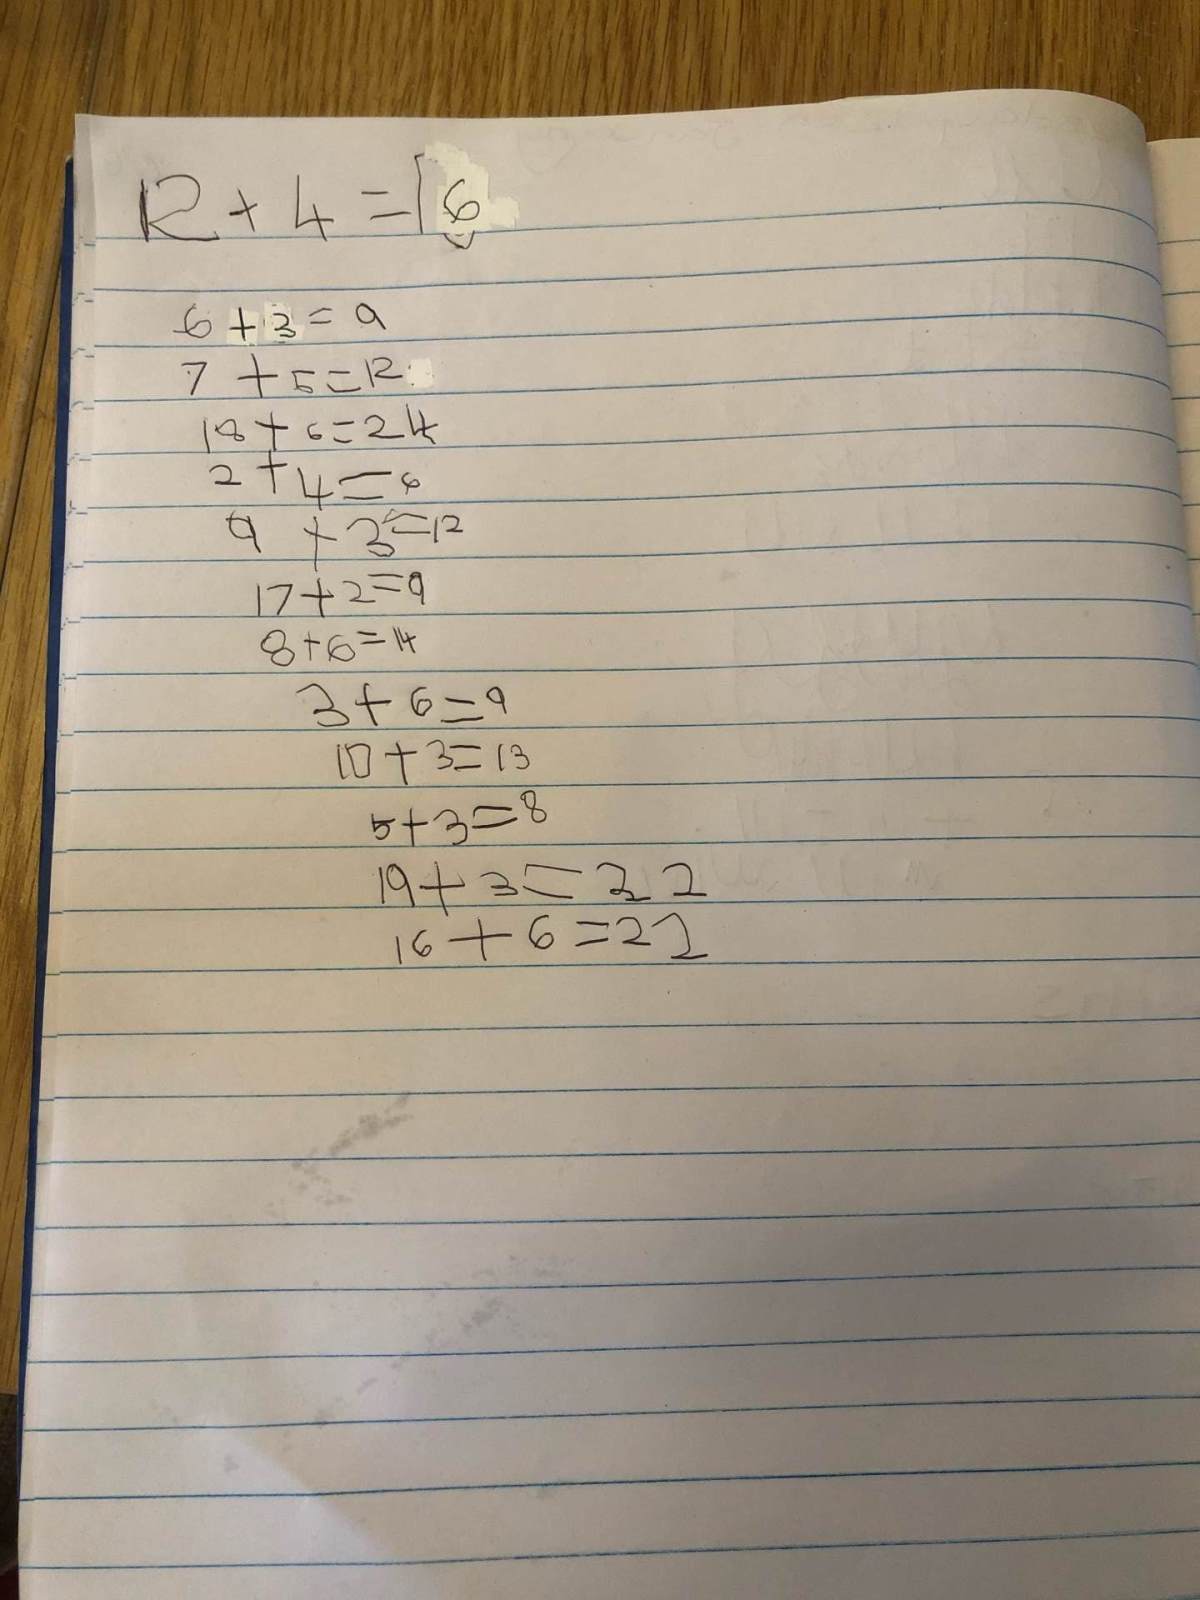 12 + 4 = 16
6 + 3 = 9
7 + 5 = 12
18 + 6 = 24
2 + 4 = 6
9 + 3 = 12
17 + 2 = 9
8 + 6 = 14
3 + 6 = 9
10 + 3 = 13
5 + 3 = 8
19 + 3 = 22
16 + 6 = 22